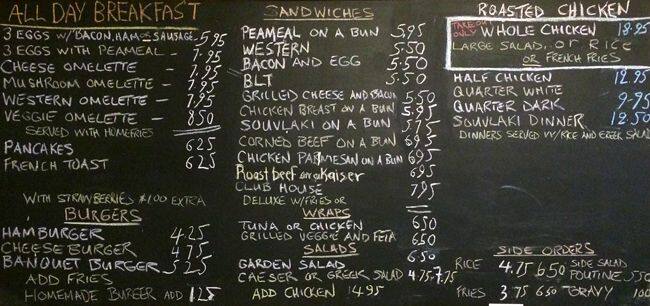 ALL DAY BREAKFAST
3 EGGS W/BACON, HAM OR SAUSAGE 5.95
3 EGGS WITH PEAMEAL - 7.95
CHEESE OMELETTE - 7.95
MUSHROOM OMELETTE - 7.95
WESTERN OMELETTE - 7.95
VEGGIE OMELETTE - 850
SERVED WITH HOMEFRIES
PANCAKES 625
FRENCH TOAST 625
WITH STRAWBERRIES $1.00 EXTRA
BURGERS
HAMBURGER 4.25
CHEESE BURGER 4.75
BANQUET BURGER 5.25
ADD FRIES
HOMEMADE BURGER ADD 125
SANDWICHES
PEAMEAL ON A BUN 5.95
WESTERN 5.50
BACON AND EGG 5.50
BLT 5.50
GRILLED CHEESE AND BACON 550
CHICKEN BREAST ON A BUN 5.95
SOUVLAKI ON A BUN 575
CORNED BEEF ON A BUN 695
CHICKEN PARMESAN ON A BUN 695
Roast beef on a Kaiser 695
CLUB HOUSE 795
DELUXE W/FRIES OR
WRAPS
TUNA OR CHICKEN 650
GRILLED VEGGIE AND FETA 650
SALADS
GARDEN SALAD 650
CAESER OR GREEK SALAD 4.75-7.75
ADD CHICKEN $4.95
ROASTED CHICKEN
TAKE OUT ONLY WHOLE CHICKEN 18.95
LARGE SALAD, OR RICE
OR FRENCH FRIES
HALF CHICKEN 12.95
QUARTER WHITE
QUARTER DARK 9.95
SOUVLAKI DINNER 12.50
DINNERS SERVED W/RICE AND GREEK SALAD
SIDE ORDERS
RICE 4.75 6.50 SIDE SALAD
POUTINE 550
FRIES 3.75 650 GRAVY 100